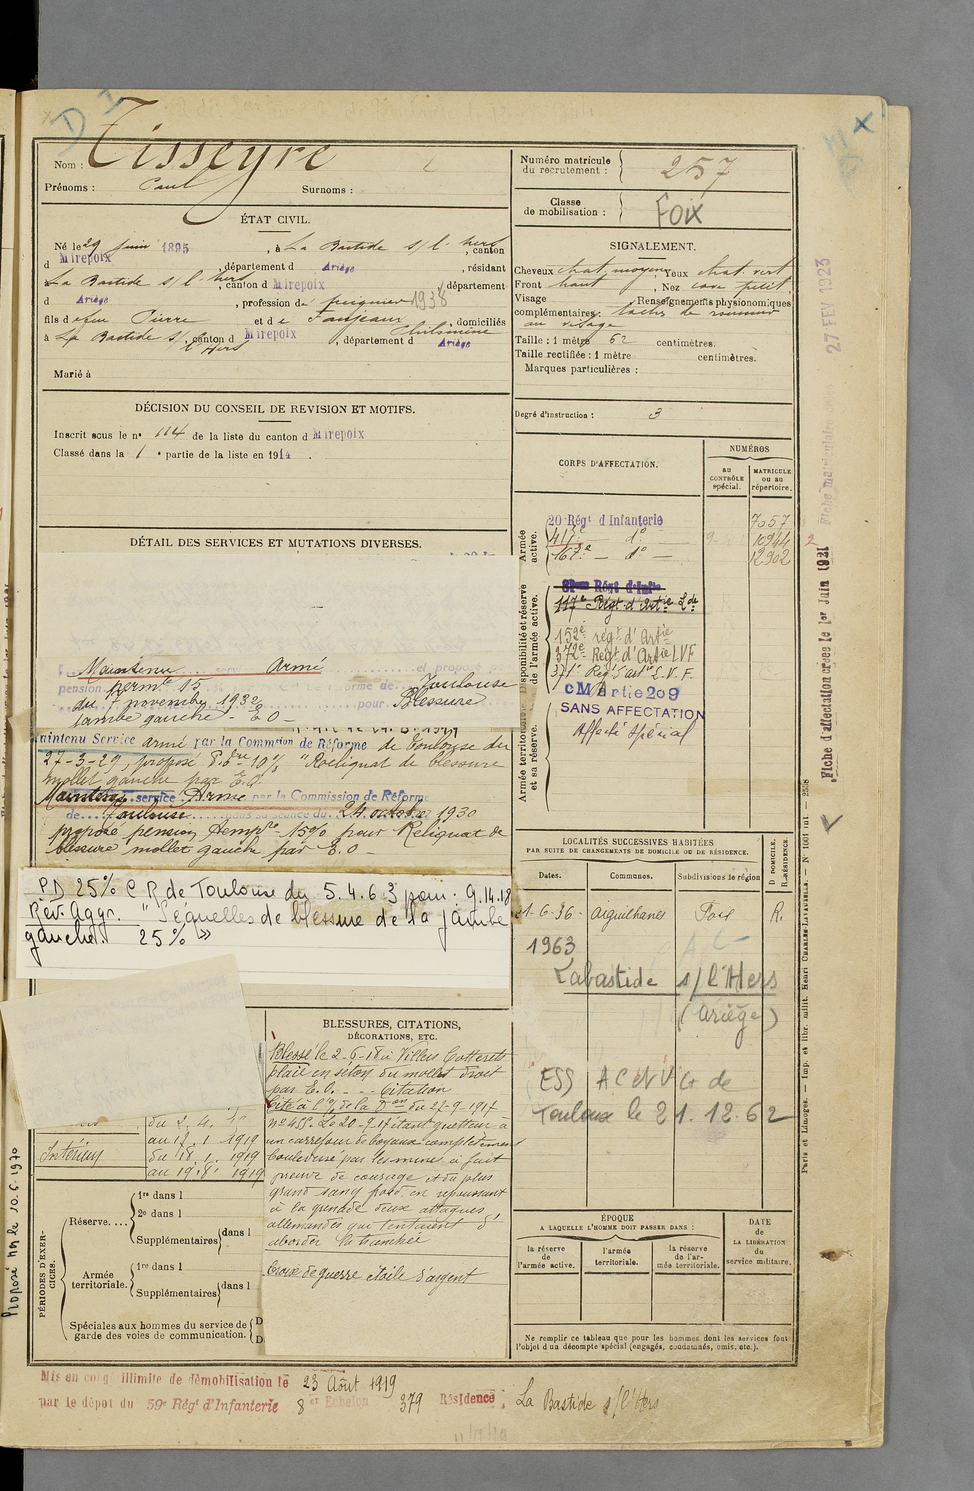 Nom : Tisseyre
Prénoms : Paul Surnoms :
ÉTAT CIVIL.
Né le 29 juin 1895, à La Bastide s/ l'hers, canton
d Mirepoix, département d Ariège, résidant
La Bastide s/ l'hers, canton d Mirepoix, département
d Ariège, profession de peignier 1938
fils de feu Pierre et de Faujeaux Philomène, domiciliés
à La Bastide s/ l'Hers, canton d Mirepoix, département d Ariège
Marié à
DÉCISION DU CONSEIL DE REVISION ET MOTIFS.
Inscrit sous le n° 114 de la liste du canton d Mirepoix
Classé dans la 1e partie de la liste en 1914.
DÉTAIL DES SERVICES ET MUTATIONS DIVERSES.
Maintenu service Armé et proposé
pension permte 15 Réforme de Toulouse
du 7 novembre 1932 pour Blessure
jambe gauche - E O -
Maintenu Service armé par la Commission de Réforme de Toulouse du
27-3-29, proposé P. tre 10% "Reliquat de blessure
mollet gauche par E.O.
Maintenu service Armé par la Commission de Réforme
de Toulouse dans sa séance du 24 octobre 1930
proposé pension tempre 15% pour Reliquat de
blessure mollet gauche par E.O
PD 25% C R de Toulouse du 5.4.63 pour : 9.14.18
Rev. Aggr. "Séquelles de blessure de la jambe
gauche." 25% »
du 2. 4.
au 17. 1. 1919
Intérieur du 18. 1. 1919
au 19. 8. 1919
BLESSURES, CITATIONS,
DÉCORATIONS, ETC.
Blessé le 2-6-18 à Villers Cotterets
plaie en séton du mollet droit
par E.O. - - Citation
Cité à l'O/ de la Don du 27-9-1917
n° 455. Le 20-9-17 étant guetteur à
un carrefour de boyaux complètement
bouleversé par les mines a fait
preuve de courage et du plus
grand sang froid en repoussant
à la grenade deux attaques
allemandes qui tentaient d'
aborder la tranchée
Croix de guerre étoile d'argent
PÉRIODES D'EXERCICES.
Réserve....
1re dans l
2e dans l
Supplémentaires dans l
Armée territoriale.
1re dans l
Supplémentaires dans l
Spéciales aux hommes du service de
garde des voies de communication.
D
D
Proposé non le 10.6.1970
Mis en congé illimité de démobilisation le 23 Août 1919
par le dépôt du 59e Régt d'Infanterie 8e Echelon 379 Résidence : La Bastide s/l'Hers
Numéro matricule
du recrutement : 257
Classe
de mobilisation : Foix
SIGNALEMENT.
Cheveux chat. moyen Yeux chat. vert
Front haut, Nez cave petit
Visage Renseignements physionomiques
complémentaires : taches de rousseur
au visage
Taille : 1 mètre 62 centimètres.
Taille rectifiée : 1 mètre centimètres.
Marques particulières :
Degré d'instruction : 3
CORPS D'AFFECTATION.
NUMÉROS
au CONTRÔLE spécial.
MATRICULE ou au répertoire.
Armée active.
20 Régt d Infanterie 7057
417e - do - 10944
162e - do - 12902
Disponibilité et réserve de l'armée active.
Régt d'Infie
117e Régt d'Artie Lde
152e régt d'Artie
372e Regt d'Artie LVF
371e Reg d'artie L.V.F.
CM Artie 209
SANS AFFECTATION
Affecté spécial
Armée territoriale et sa réserve.
LOCALITÉS SUCCESSIVES HABITÉES
PAR SUITE DE CHANGEMENTS DE DOMICILE OU DE RÉSIDENCE.
Dates. Communes. Subdivisions de région
D DOMICILE.
R. RÉSIDENCE
21-6-36 - aiguilhanes Foix R.
1963
Labastide s/l'Hers
(Ariège)
ESS ACNV G de
Toulouse le 21.12.62
ÉPOQUE
A LAQUELLE L'HOMME DOIT PASSER DANS :
la réserve de l'armée active.
l'armée territoriale.
la réserve de l'armée territoriale.
DATE de LA LIBÉRATION du service militaire.
Ne remplir ce tableau que pour les hommes dont les services font
l'objet d'un décompte spécial (engagés, condamnés, omis, etc.).
27 FEV 1923
Fiche d'affectation créée le 1er Juin 1921
Paris et Limoges. — Imp. et libr. milit. Henri CHARLES-LAVAUZELLE.